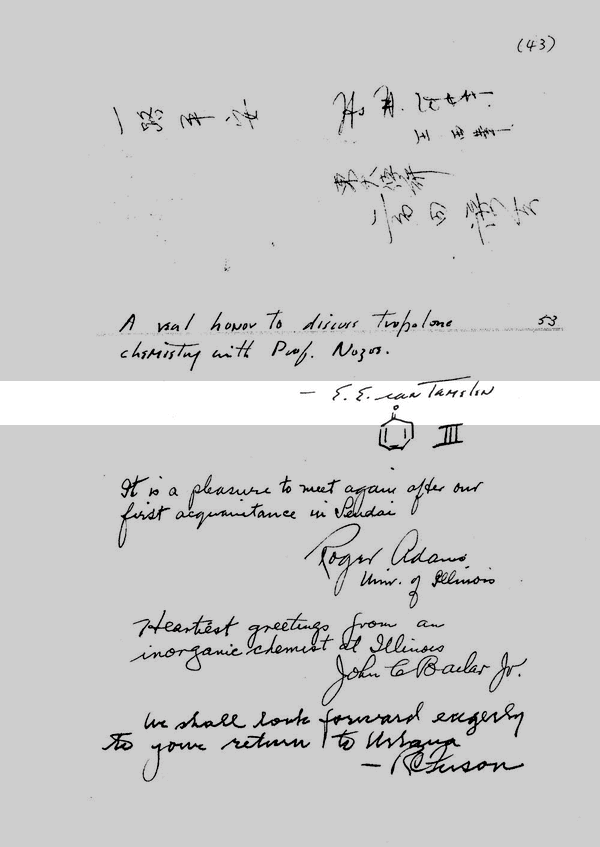 (43)
一路平安
A real honor to discuss tropolone 53
chemistry with Prof. Nozoe.
— E. E. van Tamelen
O
III
It is a pleasure to meet again after our
first acquaintance in Sendai
Roger Adams
Univ. of Illinois
Heartiest greetings from an
inorganic chemist at Illinois
John C Bailar Jr.
We shall look forward eagerly
to your return to Urbana
— RC Fuson